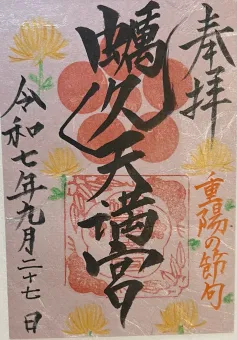 奉拝
重陽の節句
蠣久天満宮
令和七年九月二十七日